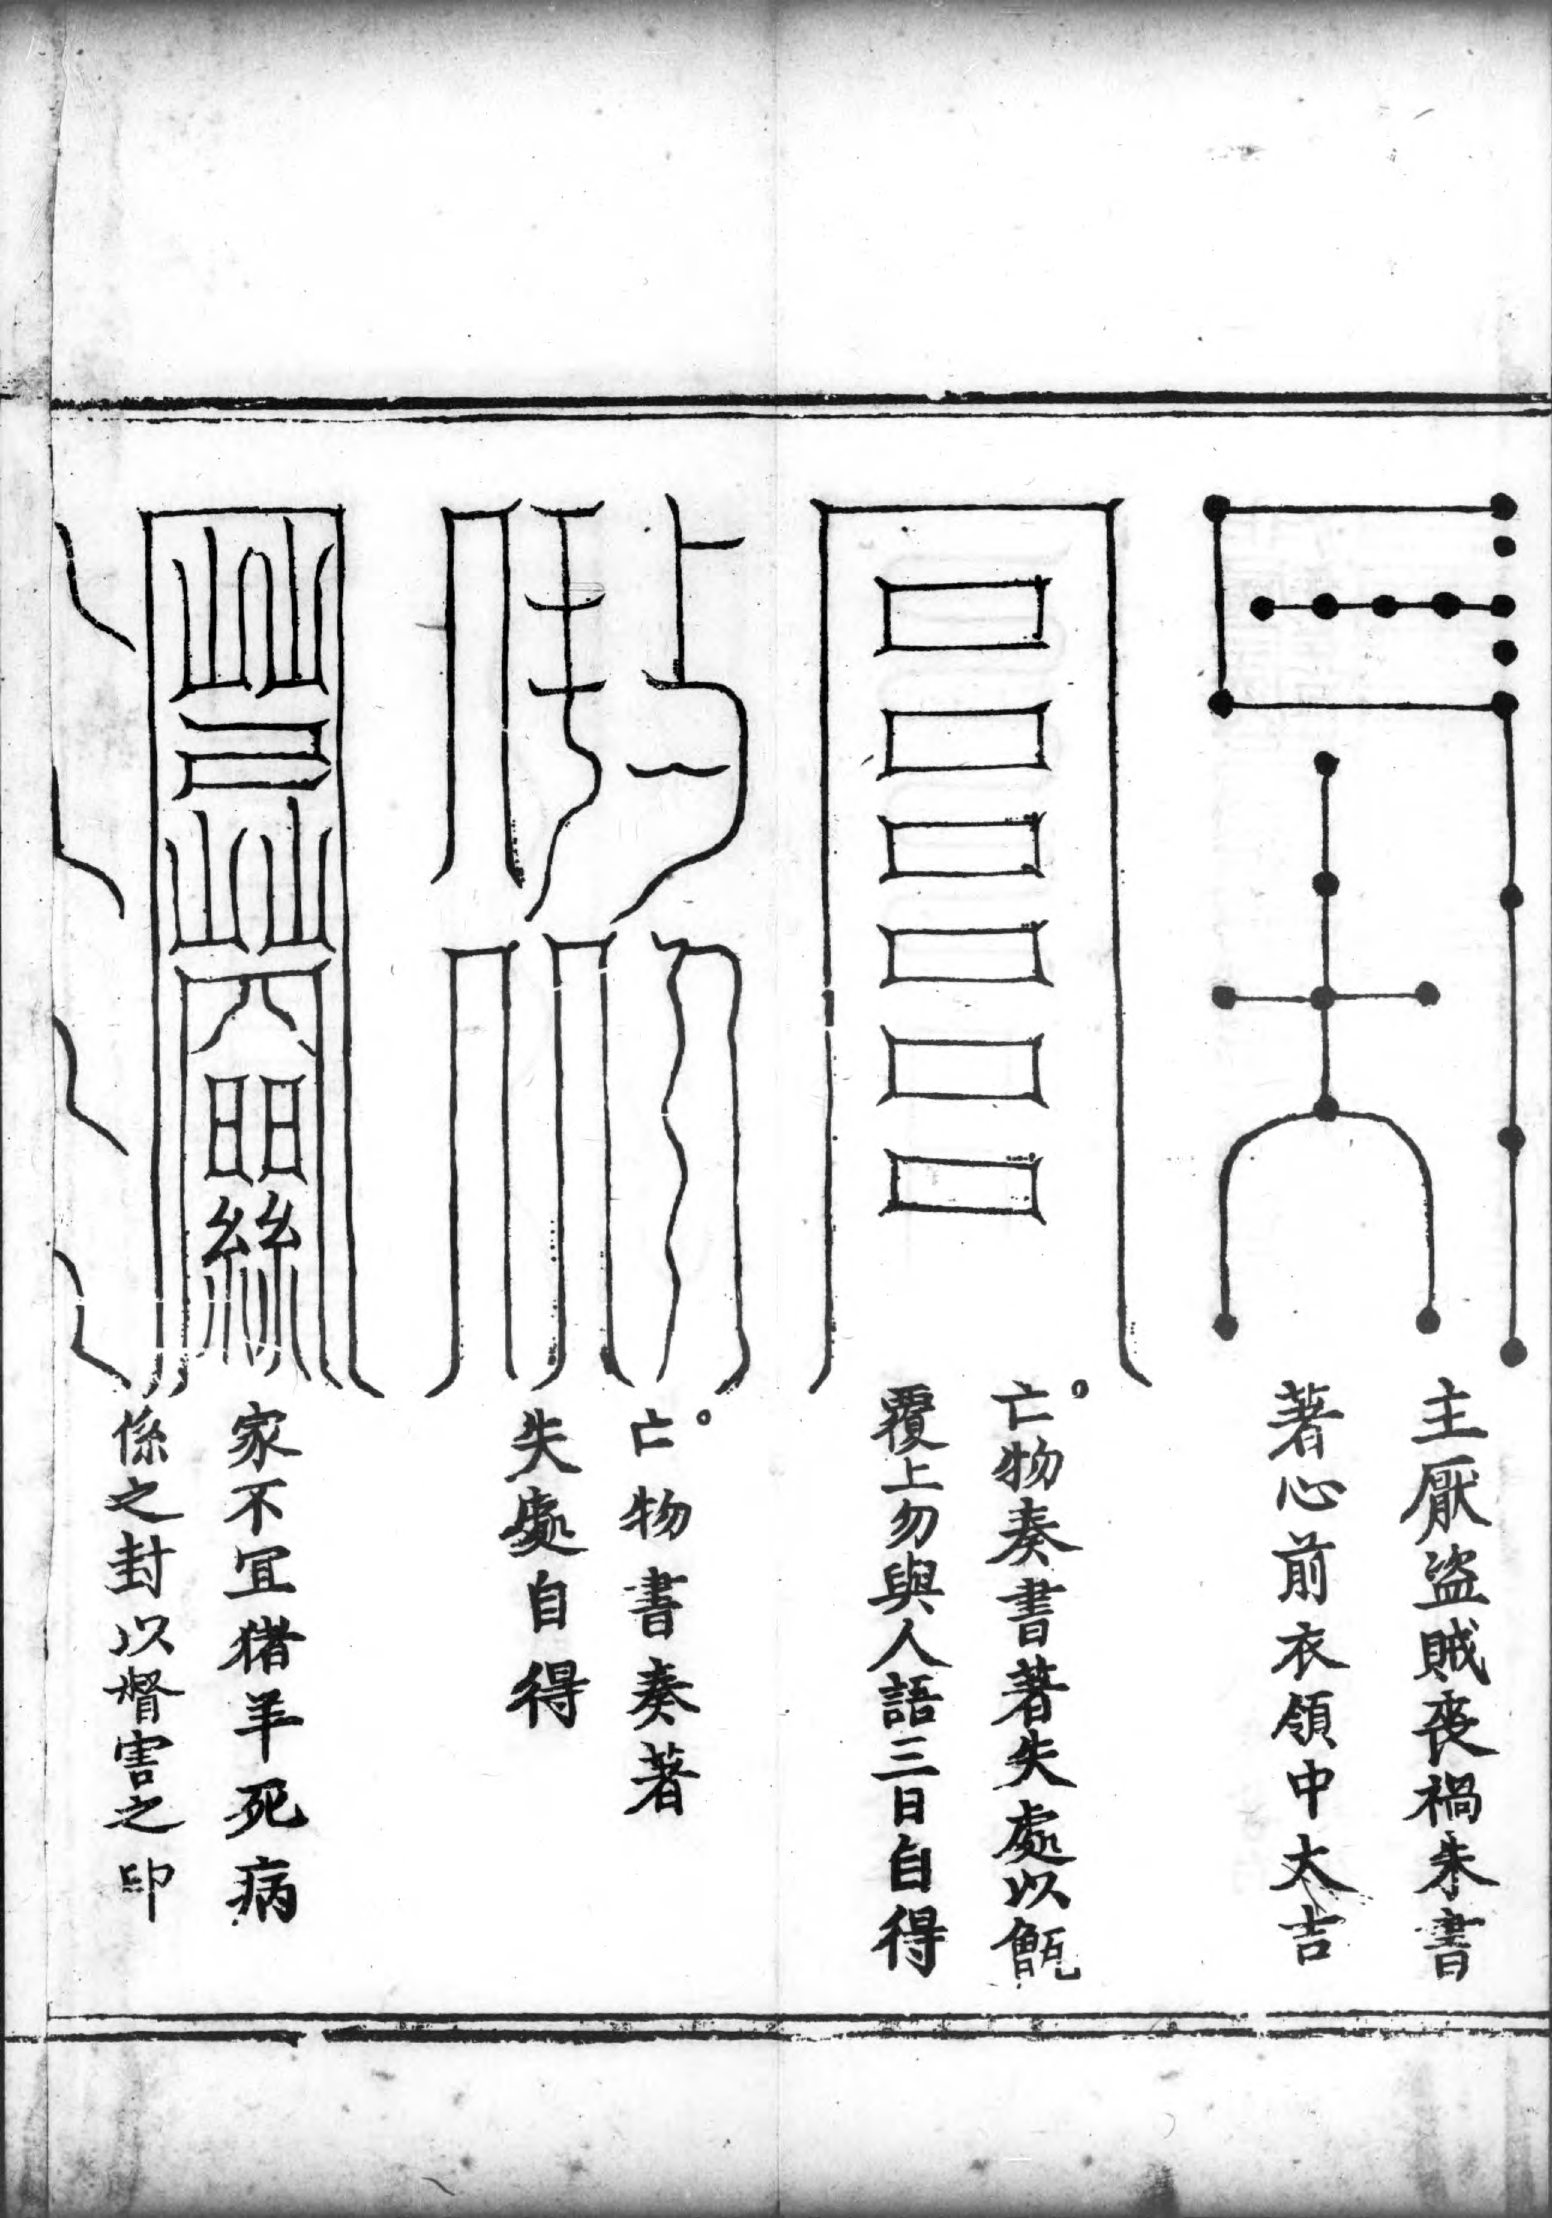 主厭盜賊喪禍朱書
著心前衣領中大吉
亡物奏書著失處以甑
覆上勿與人語三日自得
亡物書奏著
失處自得
家不宜猪羊死病
係之封以督害之印